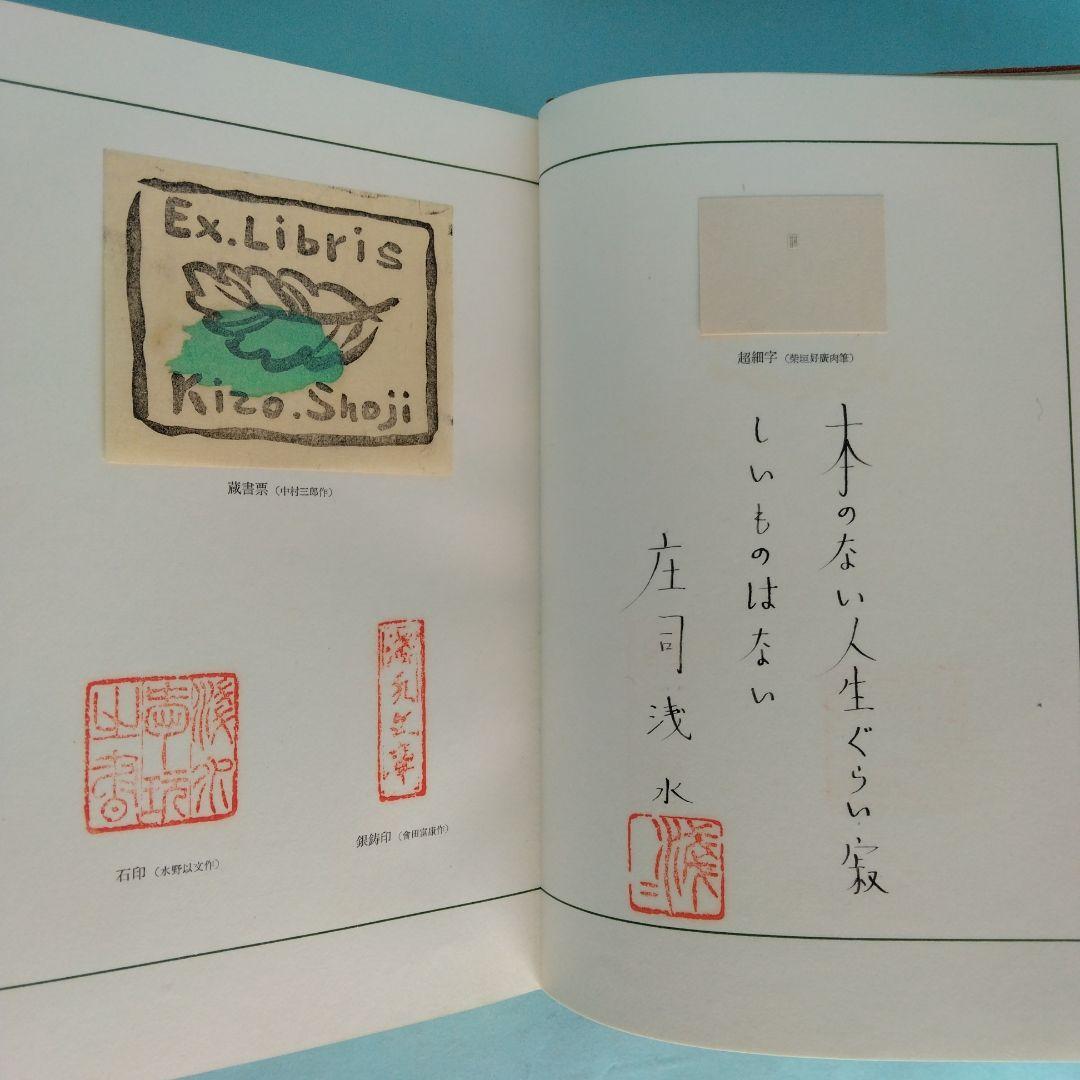 Ex.Libris
Kizo.Shoji
蔵書票（中村三郎作）
淺水
書坊
之書
石印（水野以文作）
銀鋳印（會田富康作）
超細字（柴垣好廣肉筆）
本のない人生ぐらい寂
しいものはない
庄司浅水